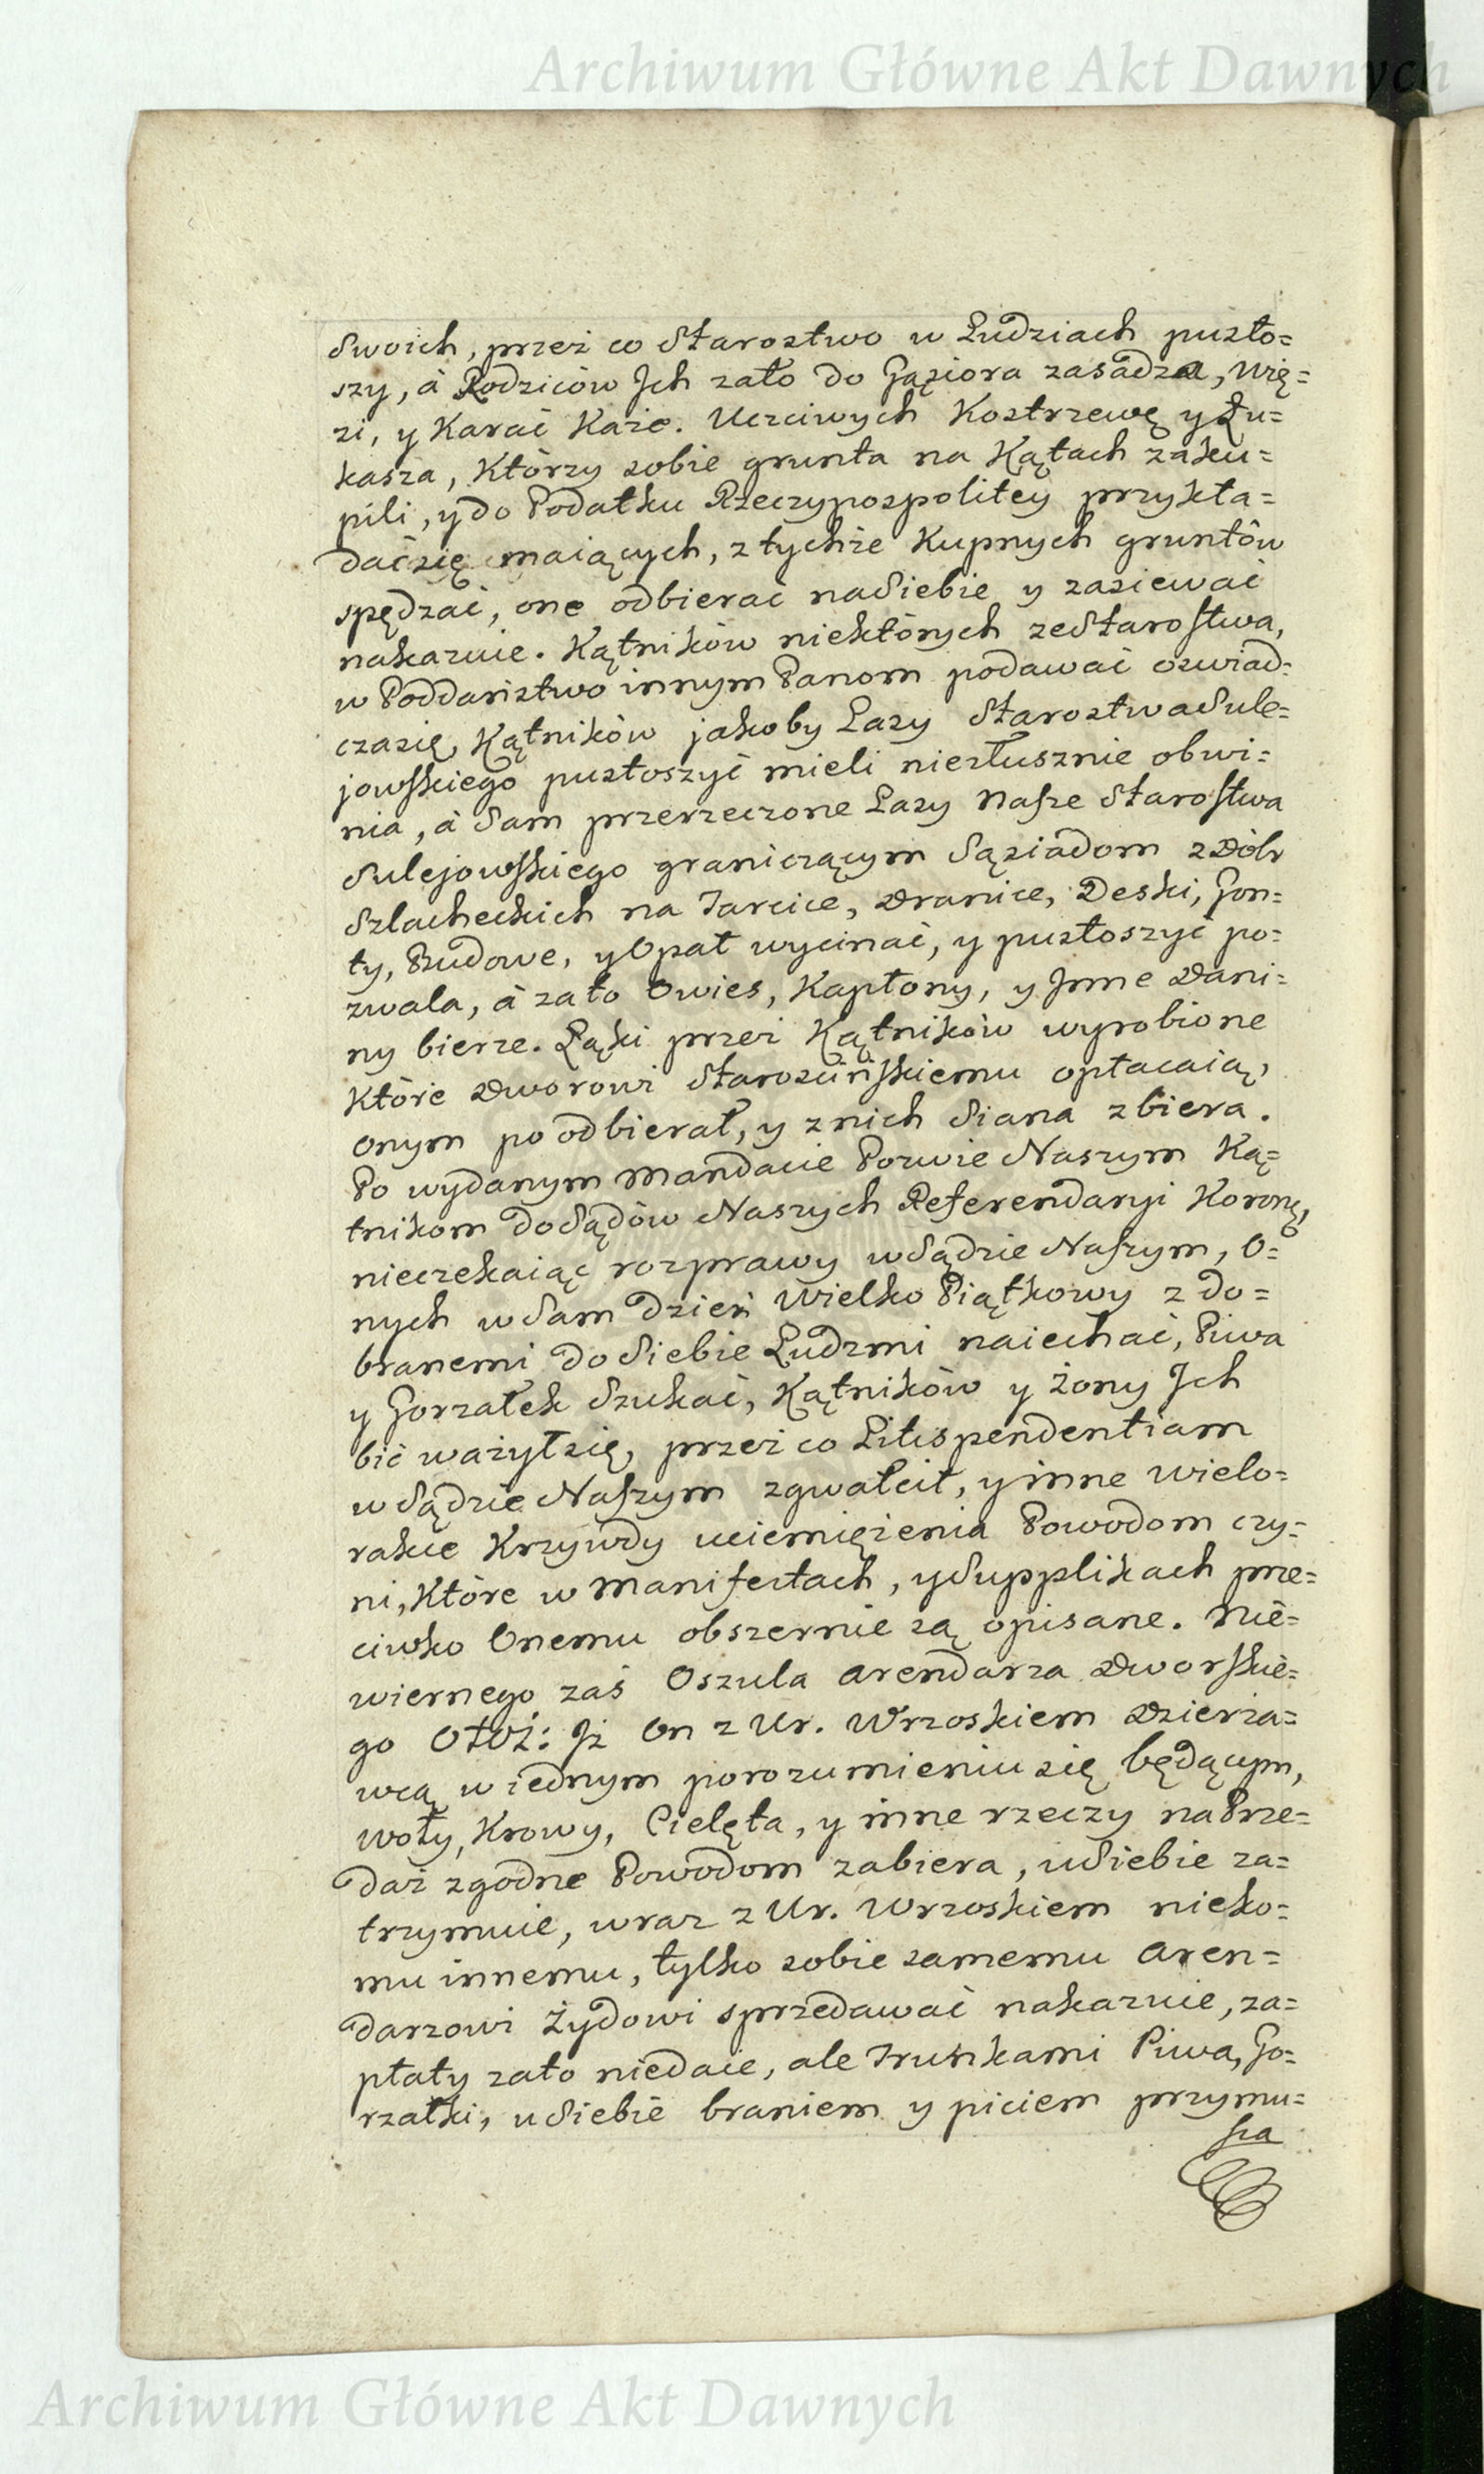 Archiwum Główne Akt Dawnych
Swoich, przez co Starostwo w Ludziach pusto=
szy, à Rodziców Jch zato do Gąsiora zasadza, Wię=
zi, y Karać Każe. Uczciwych Kostrzewę y Łu=
kasza, Którzy sobie grunta na Kątach zaku=
pili, y do Podatku Rzeczypospolitey przykła=
dać się maiących, z tychże Kupnych gruntów
spędzać, one odbierać na Siebie y zasiewać
nakazuie. Kątników niektórych ze Starostwa,
w Poddaństwo innym Panom podawać oswiad=
cza się, Kątników jakoby Lasy Starostwa Sule=
jowskiego pustoszyć mieli niesłusznie obwi=
nia, à Sam przerzeczone Lasy Nasze Starostwa
Sulejowskiego graniczącym Sąsiadom z Dóbr
Szlacheckich na Tarcice, Dranice, Deski, Gon=
ty, Budowe, y Opał wycinać, y pustoszyć po=
zwala, à zato Owies, Kapłony, y Jnne Dani=
ny bierze. Łąki przez Kątników wyrobione
Które Dworowi Starościńskiemu opłacaią,
onym poodbierał, y z nich Siana zbiera.
Po wydanym Mandacie Pozwie Naszym Ką=
tnikom do Sądów Naszych Referendaryi Koronę,
nieczekaiąc rozprawy w Sądzie Naszym, O=
nych w Sam dzień Wielko Piątkowy z do=
branemi do Siebie Ludzmi naiechać, Piwa
y Gorzałek Szukać, Kątników y Żony Jch
bić ważył się, przez co Litispendentiam
w Sądzie Naszym zgwałcił, y inne wielo=
rakie Krzywdy uciemiężenia Powodom czy=
ni, Które w Manifestach, y Supplikach prze=
ciwko Onemu obszernie są opisane. Nie=
wiernego zaś Oszula Arendarza Dworskie=
go Otoż: Jż On z Ur. Wrzoskiem Dzierża=
wcą w iednym porozumieniu się będącym,
woły, Krowy, Cielęta, y inne rzeczy na Prze=
daż zgodne Powodom zabiera, u Siebie za=
trzymuie, wraz z Ur. Wrzoskiem nieko=
mu innemu, tylko sobie samemu Aren=
darzowi Żydowi sprzedawać nakazuie, za=
płaty zato niedaie, ale Trunkami Piwa, Go=
rzałki, u Siebie braniem y piciem przymu=
sza
Archiwum Główne Akt Dawnych